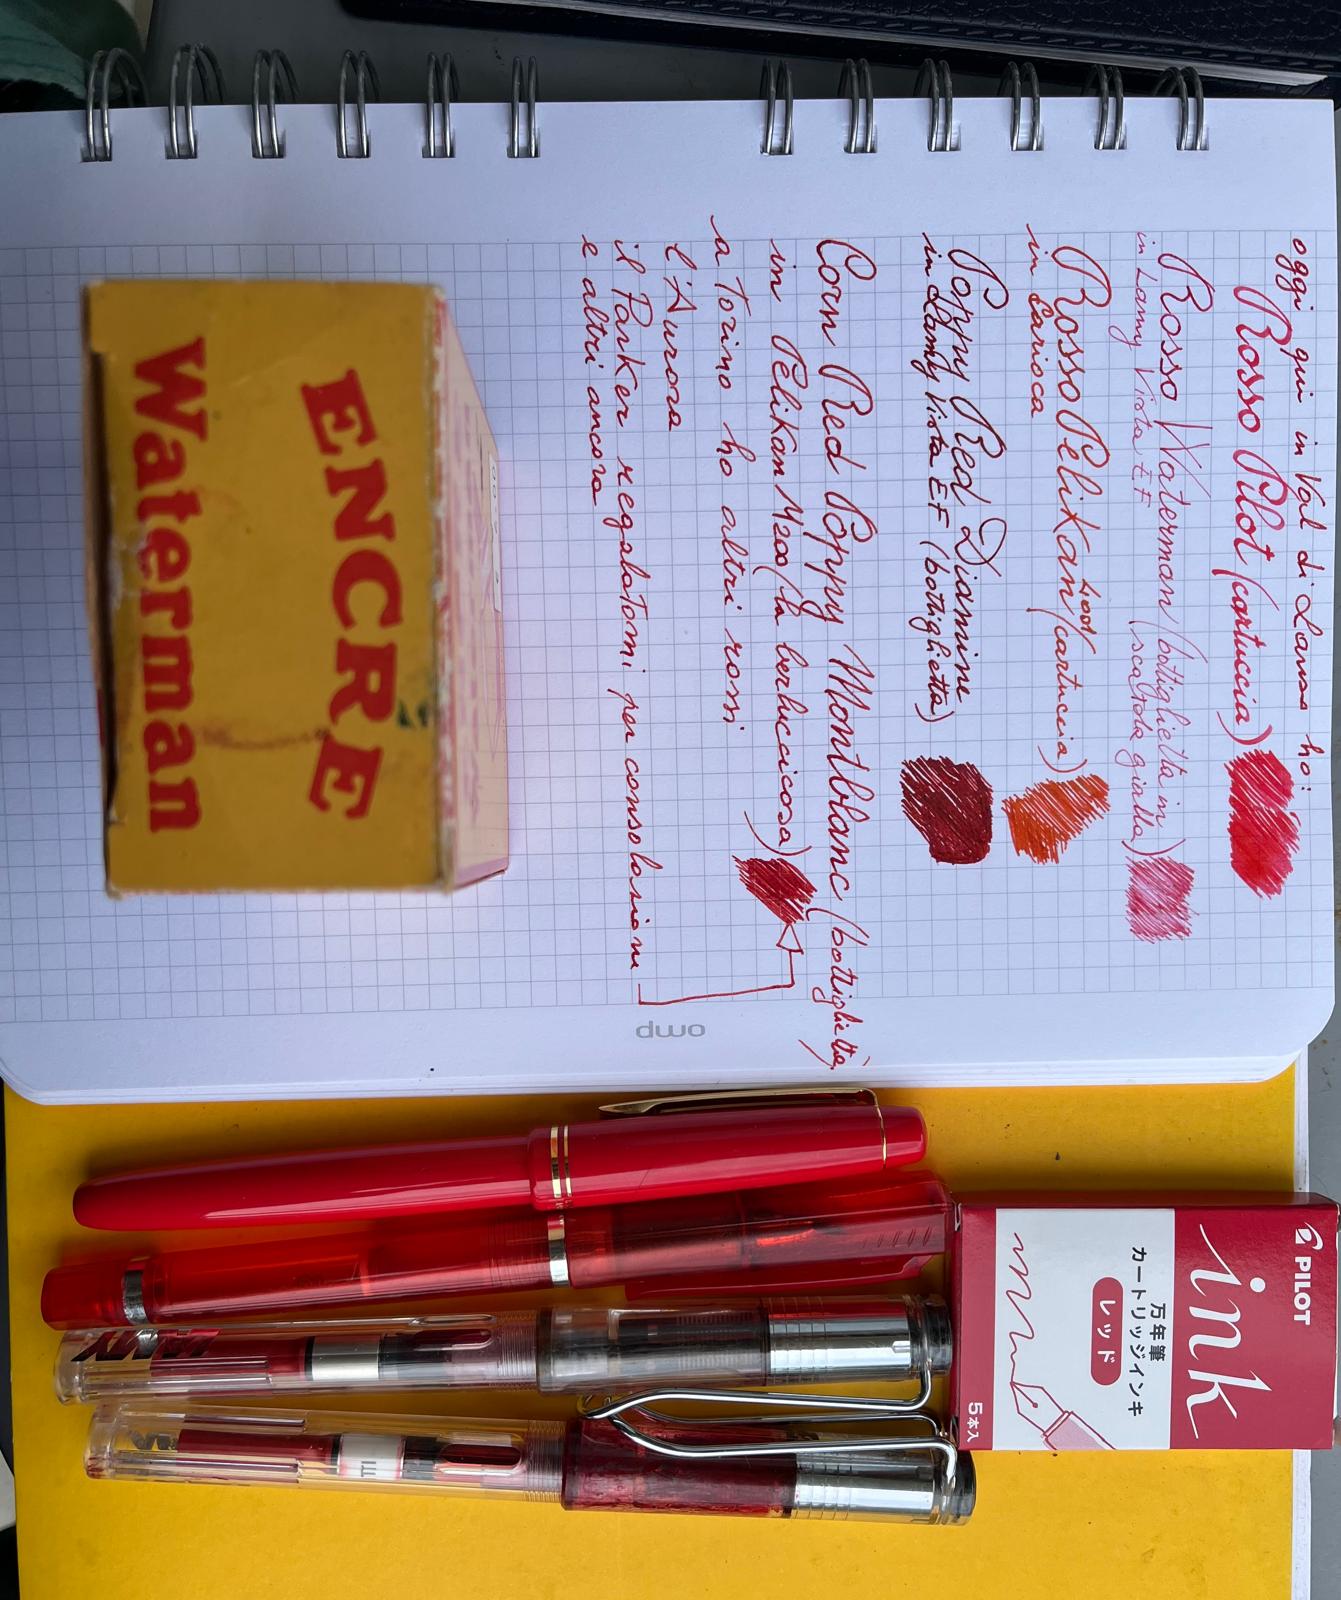 oggi qui in Val di Lanzo ho:
Rosso Pilot (cartuccia)
Rosso Waterman (bottiglietta in
in Lamy Vista EF (scatola gialla)
Rosso Pelikan 4001 (cartuccia)
in Carioca
Poppy Red Diamine
in Lamy Vista EF (bottiglietta)
Corn Red Poppy Montblanc (bottiglietta)
in Pelikan M200 (la berluccicosa)
a Torino ho altri rossi
l'Aurora
il Parker regalatomi per consolazione
e altri ancora
ENCRE
Waterman
omp
PILOT
ink
万年筆
カートリッジインキ
レッド
5本入
LAMY